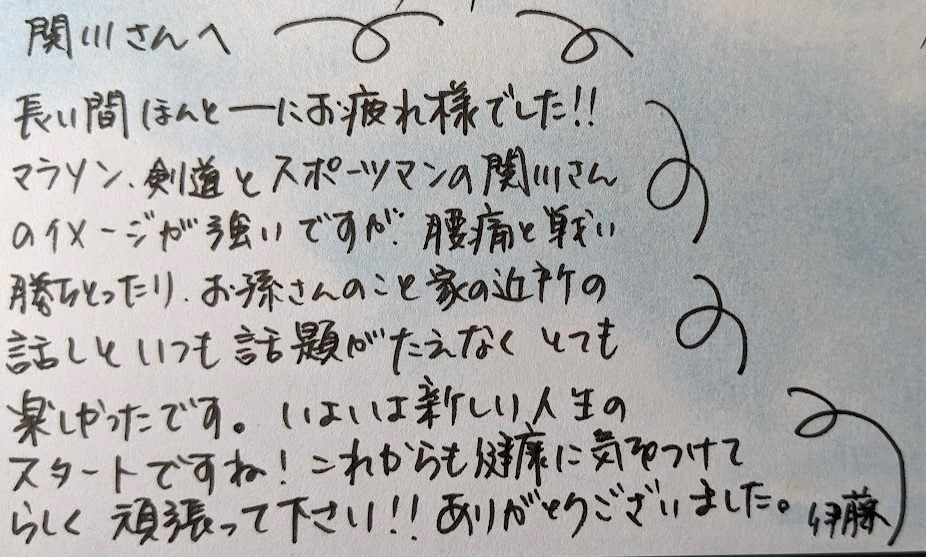 関川さんへ
長い間ほんと一にお疲れ様でした!!
マラソン、剣道とスポーツマンの関川さん
のイメージが強いですが、腰痛と戦い
勝ちとったり、お孫さんのこと家の近所の
話しといつも話題がたえなくとても
楽しかったです。いよいよ新しい人生の
スタートですね!これからも健康に気をつけて
らしく頑張って下さい!!ありがとうございました。伊藤